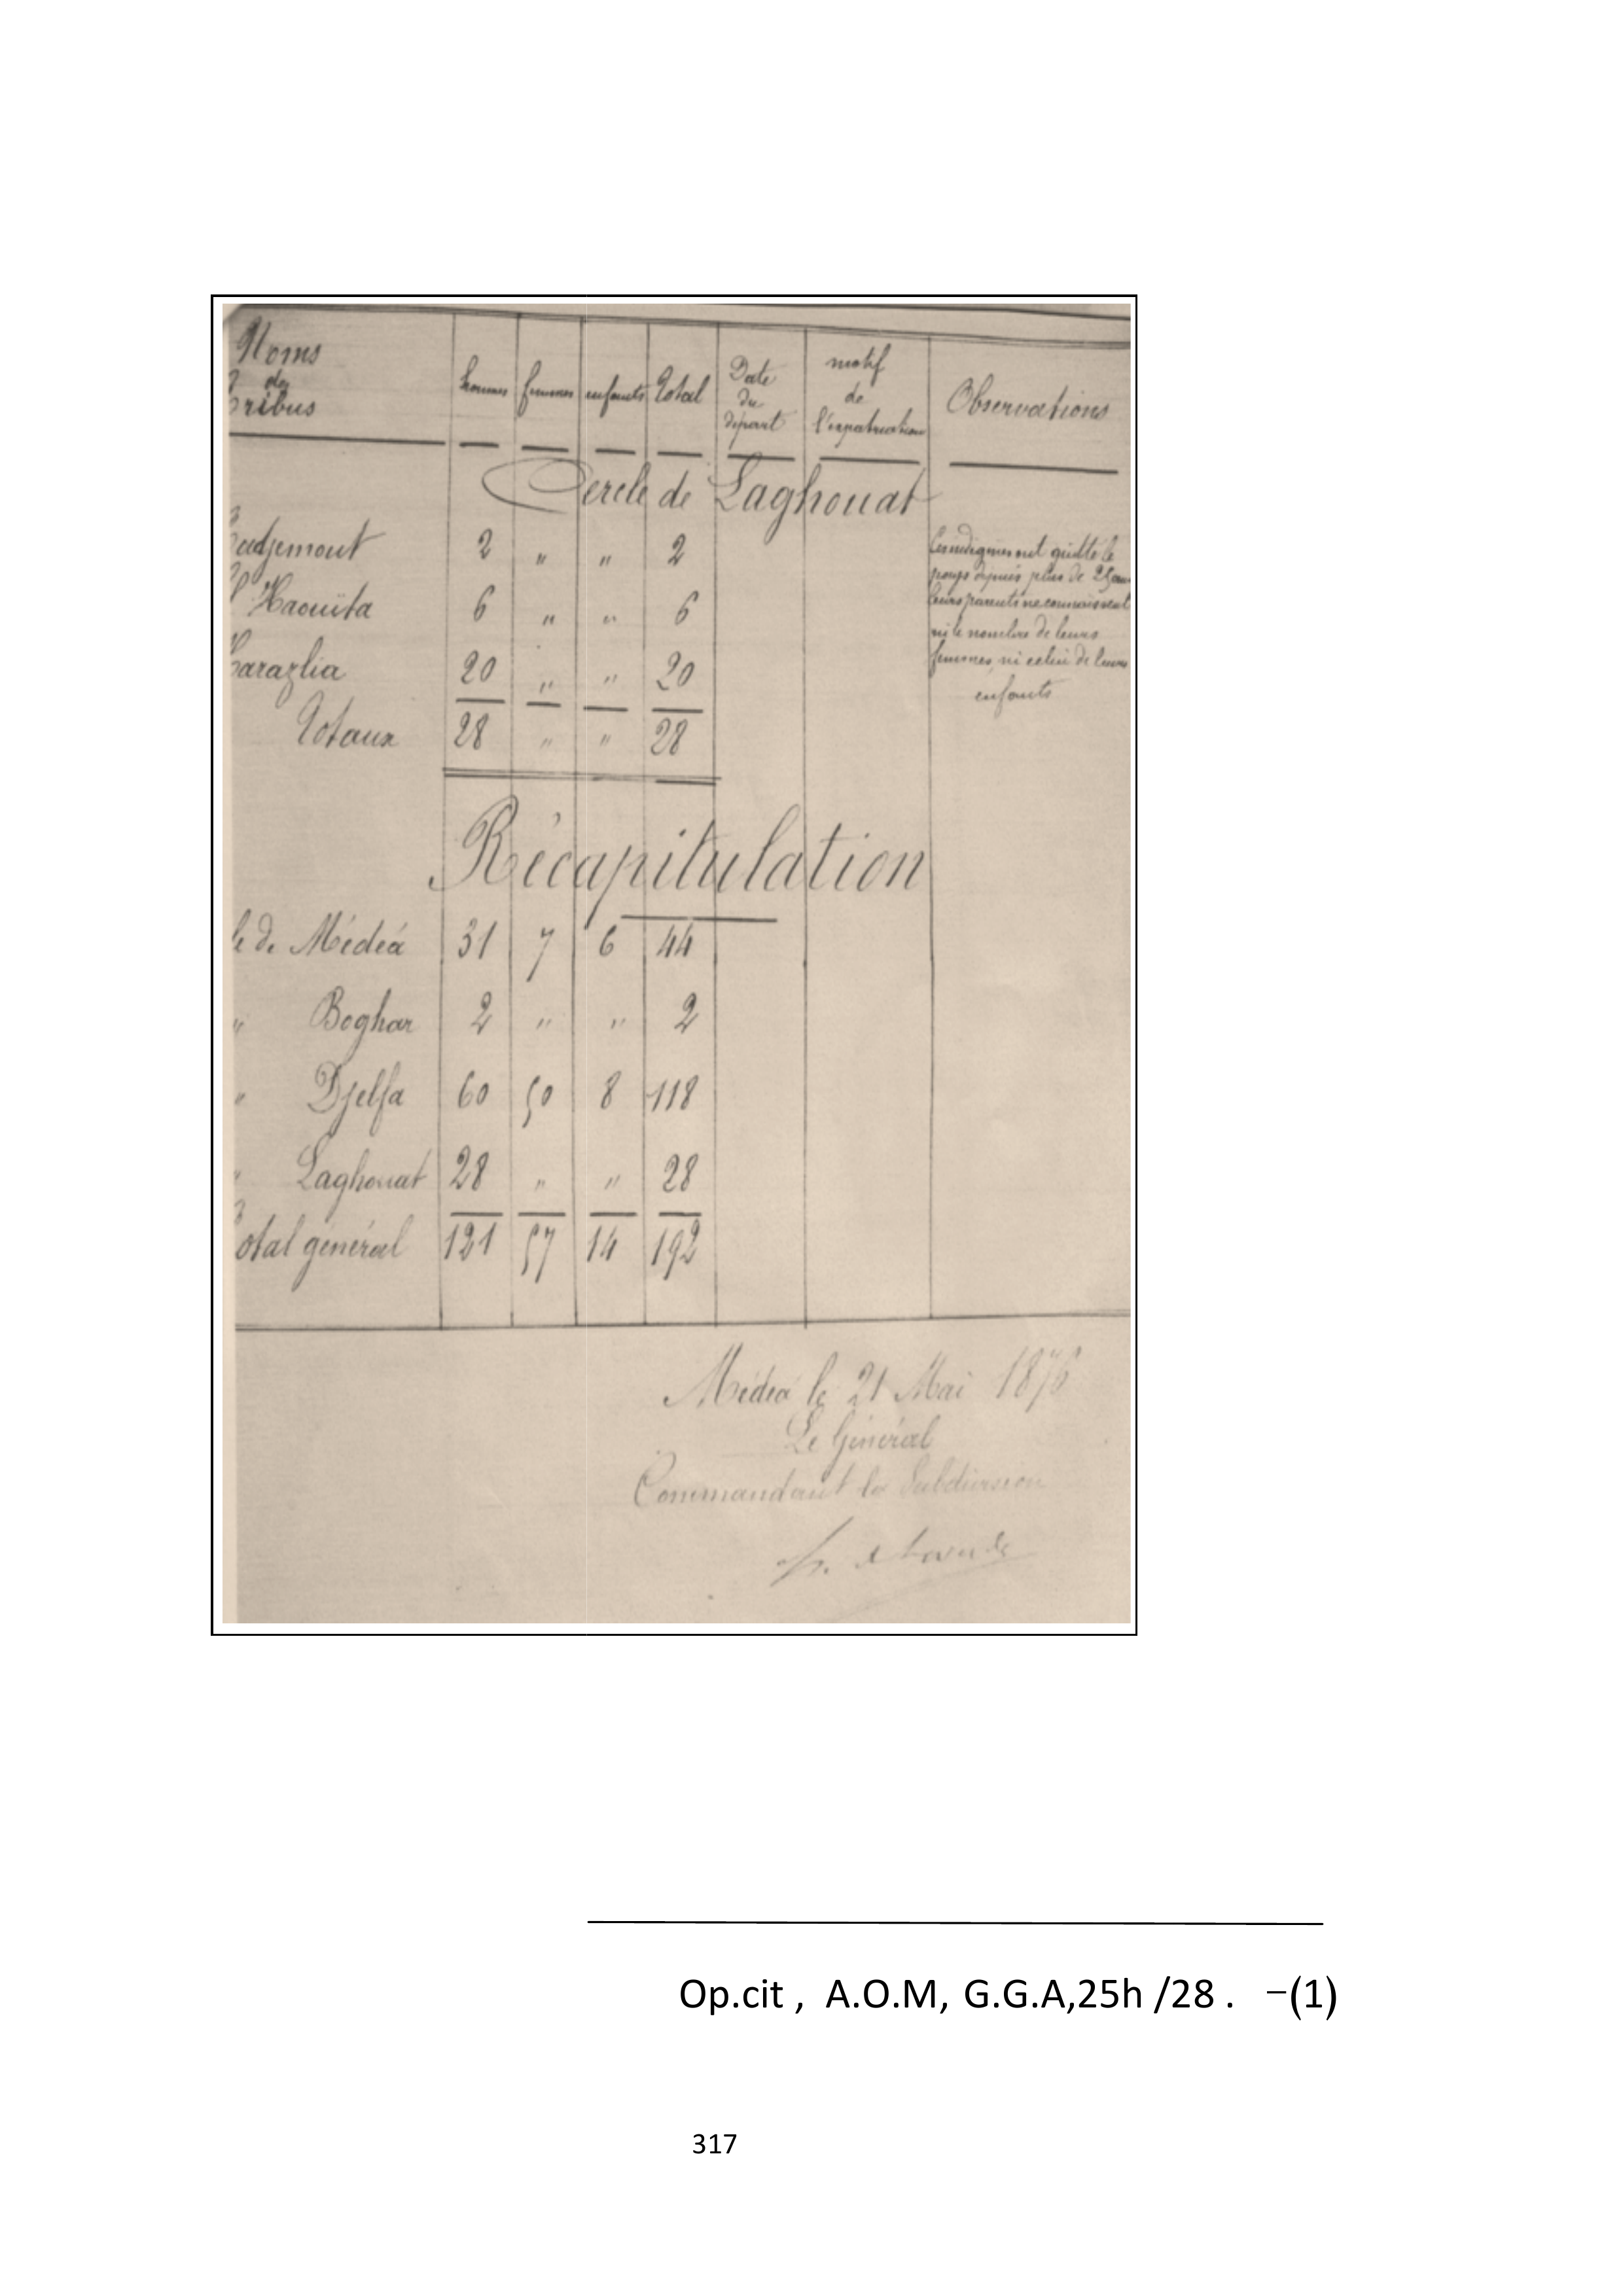 Noms
des
Tribus
hommes femmes enfants Total
Date
du
départ
motif
de
l'expatriation
Observations
Cercle de Laghouat
Tadjemout 2 " " 2
El Haouïta 6 " " 6
Taraglia 20 " " 20
Totaux 28 " " 28
Ces indigènes ont quitté le
pays depuis plus de 25 ans
leurs parents ne connaissent
ni le nombre de leurs
femmes, ni celui de leurs
enfants
Récapitulation
le de Médéa 31 7 6 44
" Boghar 2 " " 2
" Djelfa 60 50 8 118
" Laghouat 28 " " 28
Total général 121 57 14 192
Médéa le 21 Mai 1876
Le Général
Commandant la Subdivision
Op.cit , A.O.M, G.G.A,25h /28 . –(1)
317